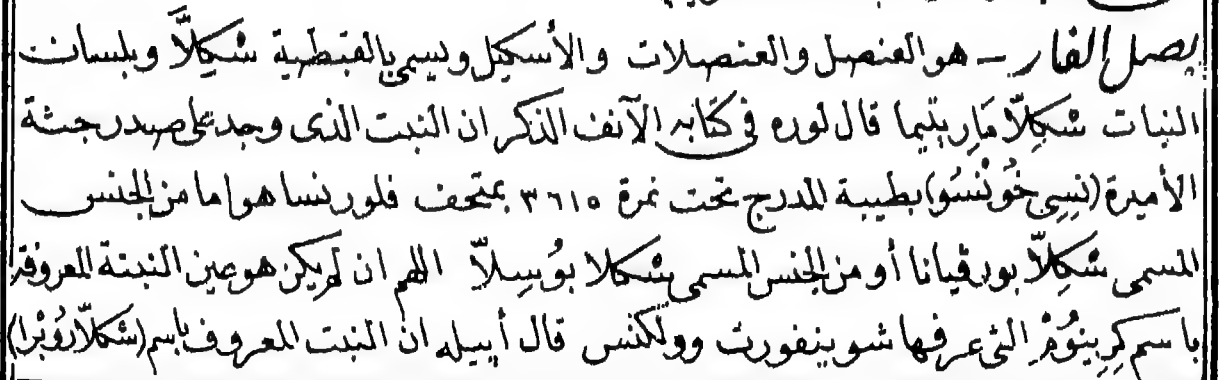 بصل الفار ـ هو العنصل والعنصلات والأسكيل ويسمى بالقبطية شكِلاَّ وبلسان
النبات شكِلاَّ مَارِيتيما قال لوره فى كتابه الآنف الذكر ان النبت الذى وجد على صدر جثة
الأميرة (نسِى خُونْسُو) بطيبة المدرج تحت نمرة ٣٦١٥ بمتحف فلورنسا هو اما من الجنس
المسمى شكِلاَّ بورڤيانا أو من الجنس المسمى شكلا بوُسِيلاّ اللهم ان لم يكن هو عين النبتة المعروفة
باسم كرِينوُمْ التى عرفها شوينفورت وولكنس قال أبيله ان النبت المعروف باسم (شكلاَّ رُوُبْرا)